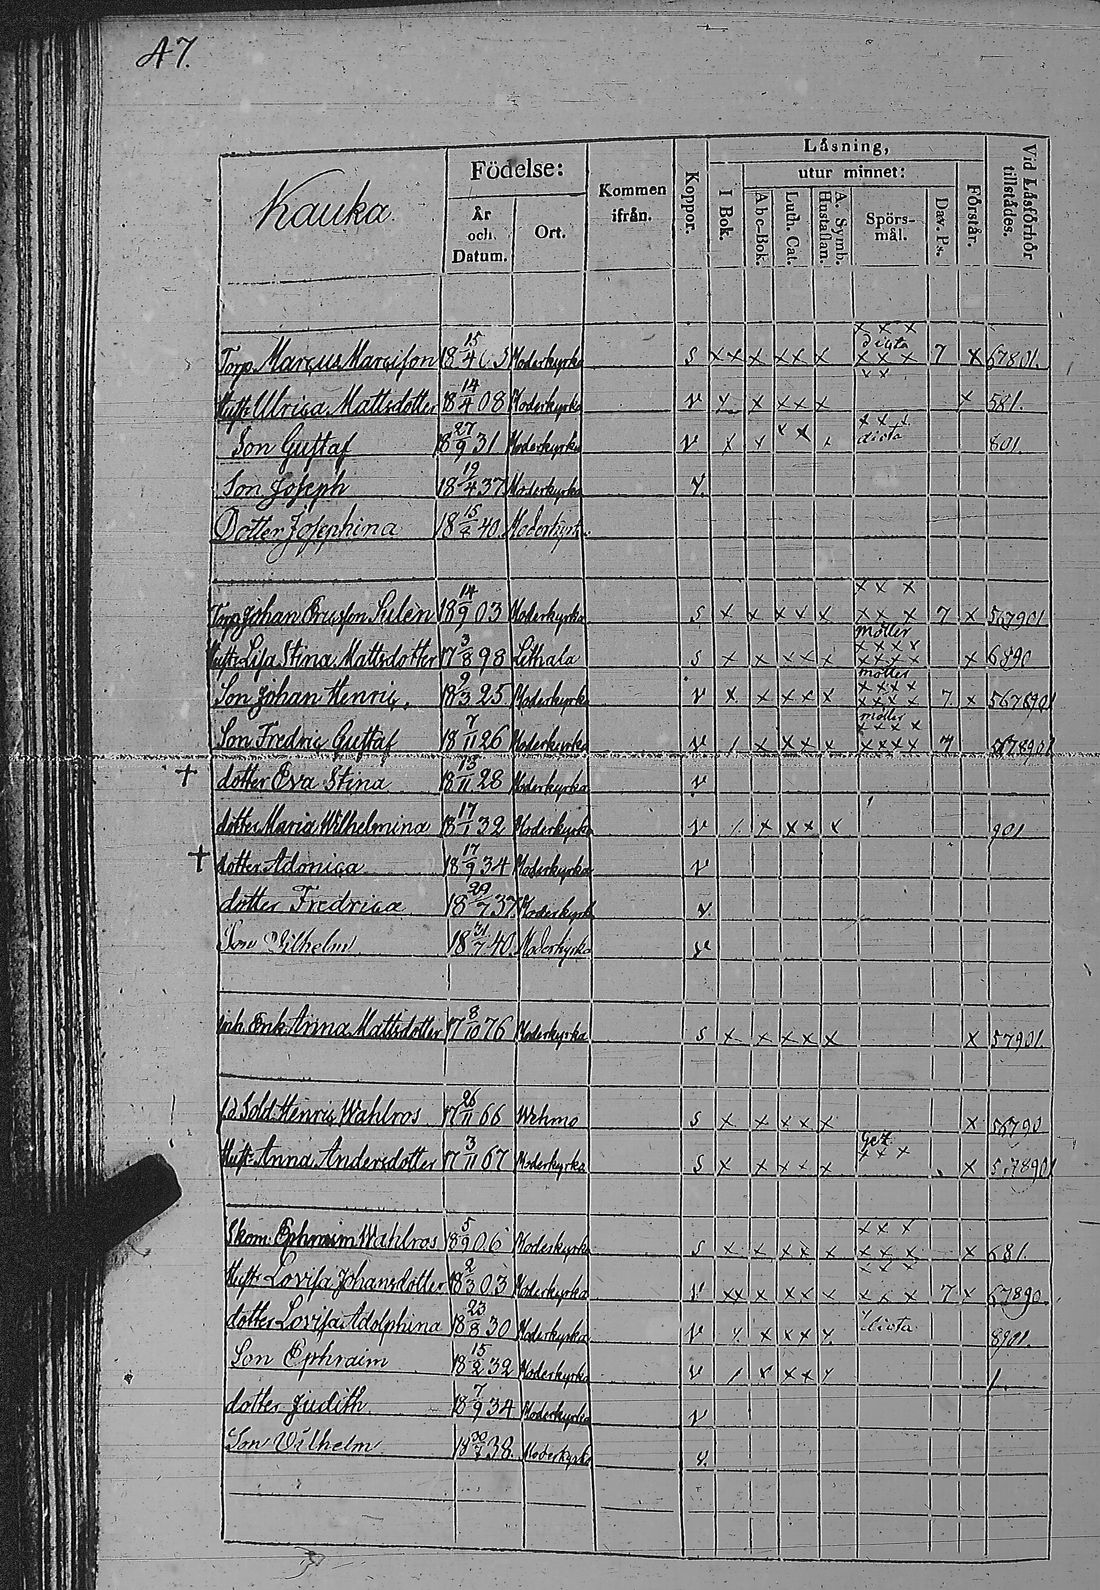 47.
Kauka.
Födelse:
År och Datum.
Ort.
Kommen ifrån.
Koppor.
Läsning,
I Bok.
utur minnet:
Abc-Bok.
Luth. Cat.
A. Symb. Hustaflan.
Spörs-mål.
Dav. Ps.
Förstår.
Vid Läsförhör tillstädes.
x x x
Torp. Marcus Marcisson 18 15/4 03 Moderkyrka s x x x x x x dicta x x x 7 x 67801.
x x
Hust. Ulrica Mattsdotter 18 14/4 08 Moderkyrka v x x x x x 581.
Son Gustaf 18 27/9 31 Moderkyrka v x x x x x x x x dicta 801.
Son Joseph 18 19/4 37 Moderkyrka v.
Dotter Josephina 18 15/8 40. Moderkyrka
x x x
Torp Johan Ericsson Sulén 18 14/9 03 Moderkyrka s x x x x x x x x 7 x 567901
Hust. Lisa Stina Mattsdotter 17 3/8 98 Lethala s x x x x x x x x x x 6890
Son Johan Henric. 18 9/3 25 Moderkyrka v x x x x x x x x x 7 x 567890
Son Fredric Gustaf 18 7/11 26 Moderkyrka v / x x x x x x x x 7 678901
† dotter Eva Stina 18 13/11 28 Moderkyrka v
dotter Maria Wilhelmina 18 17/1 32 Moderkyrka v / x x x x 901
† dotter Adonica 18 17/9 34 Moderkyrka v
dotter Fredrica 18 29/7 37 Moderkyrka v
Son Wilhelm 18 31/7 40. Moderkyrka v
inh. Enk. Anna Mattsdotter 17 8/10 76 Moderkyrka s x x x x x x 57901.
fd Sold. Henric Wahlros 17 26/11 66 Wehmo s x x x x x x 56790
Hust. Anna Andersdotter 17 3/11 67 Moderkyrka s x x x x x x x x x 578901
x x x
Skom. Ephraim Wahlros 18 5/9 06 Moderkyrka s x x x x x x x x x 681.
x x x
Hust. Lovisa Johansdotter 18 2/3 03 Moderkyrka v x x x x x x x x x 7 x 67890
dotter Lovisa Adolphina 18 23/8 30 Moderkyrka v / x x x x dicta 8901.
Son Ephraim 18 15/2 32 Moderkyrka v / x x x x 1.
dotter Judith 18 7/9 34 Moderkyrka v
Son Wilhelm 18 38. Moderkyrka v.